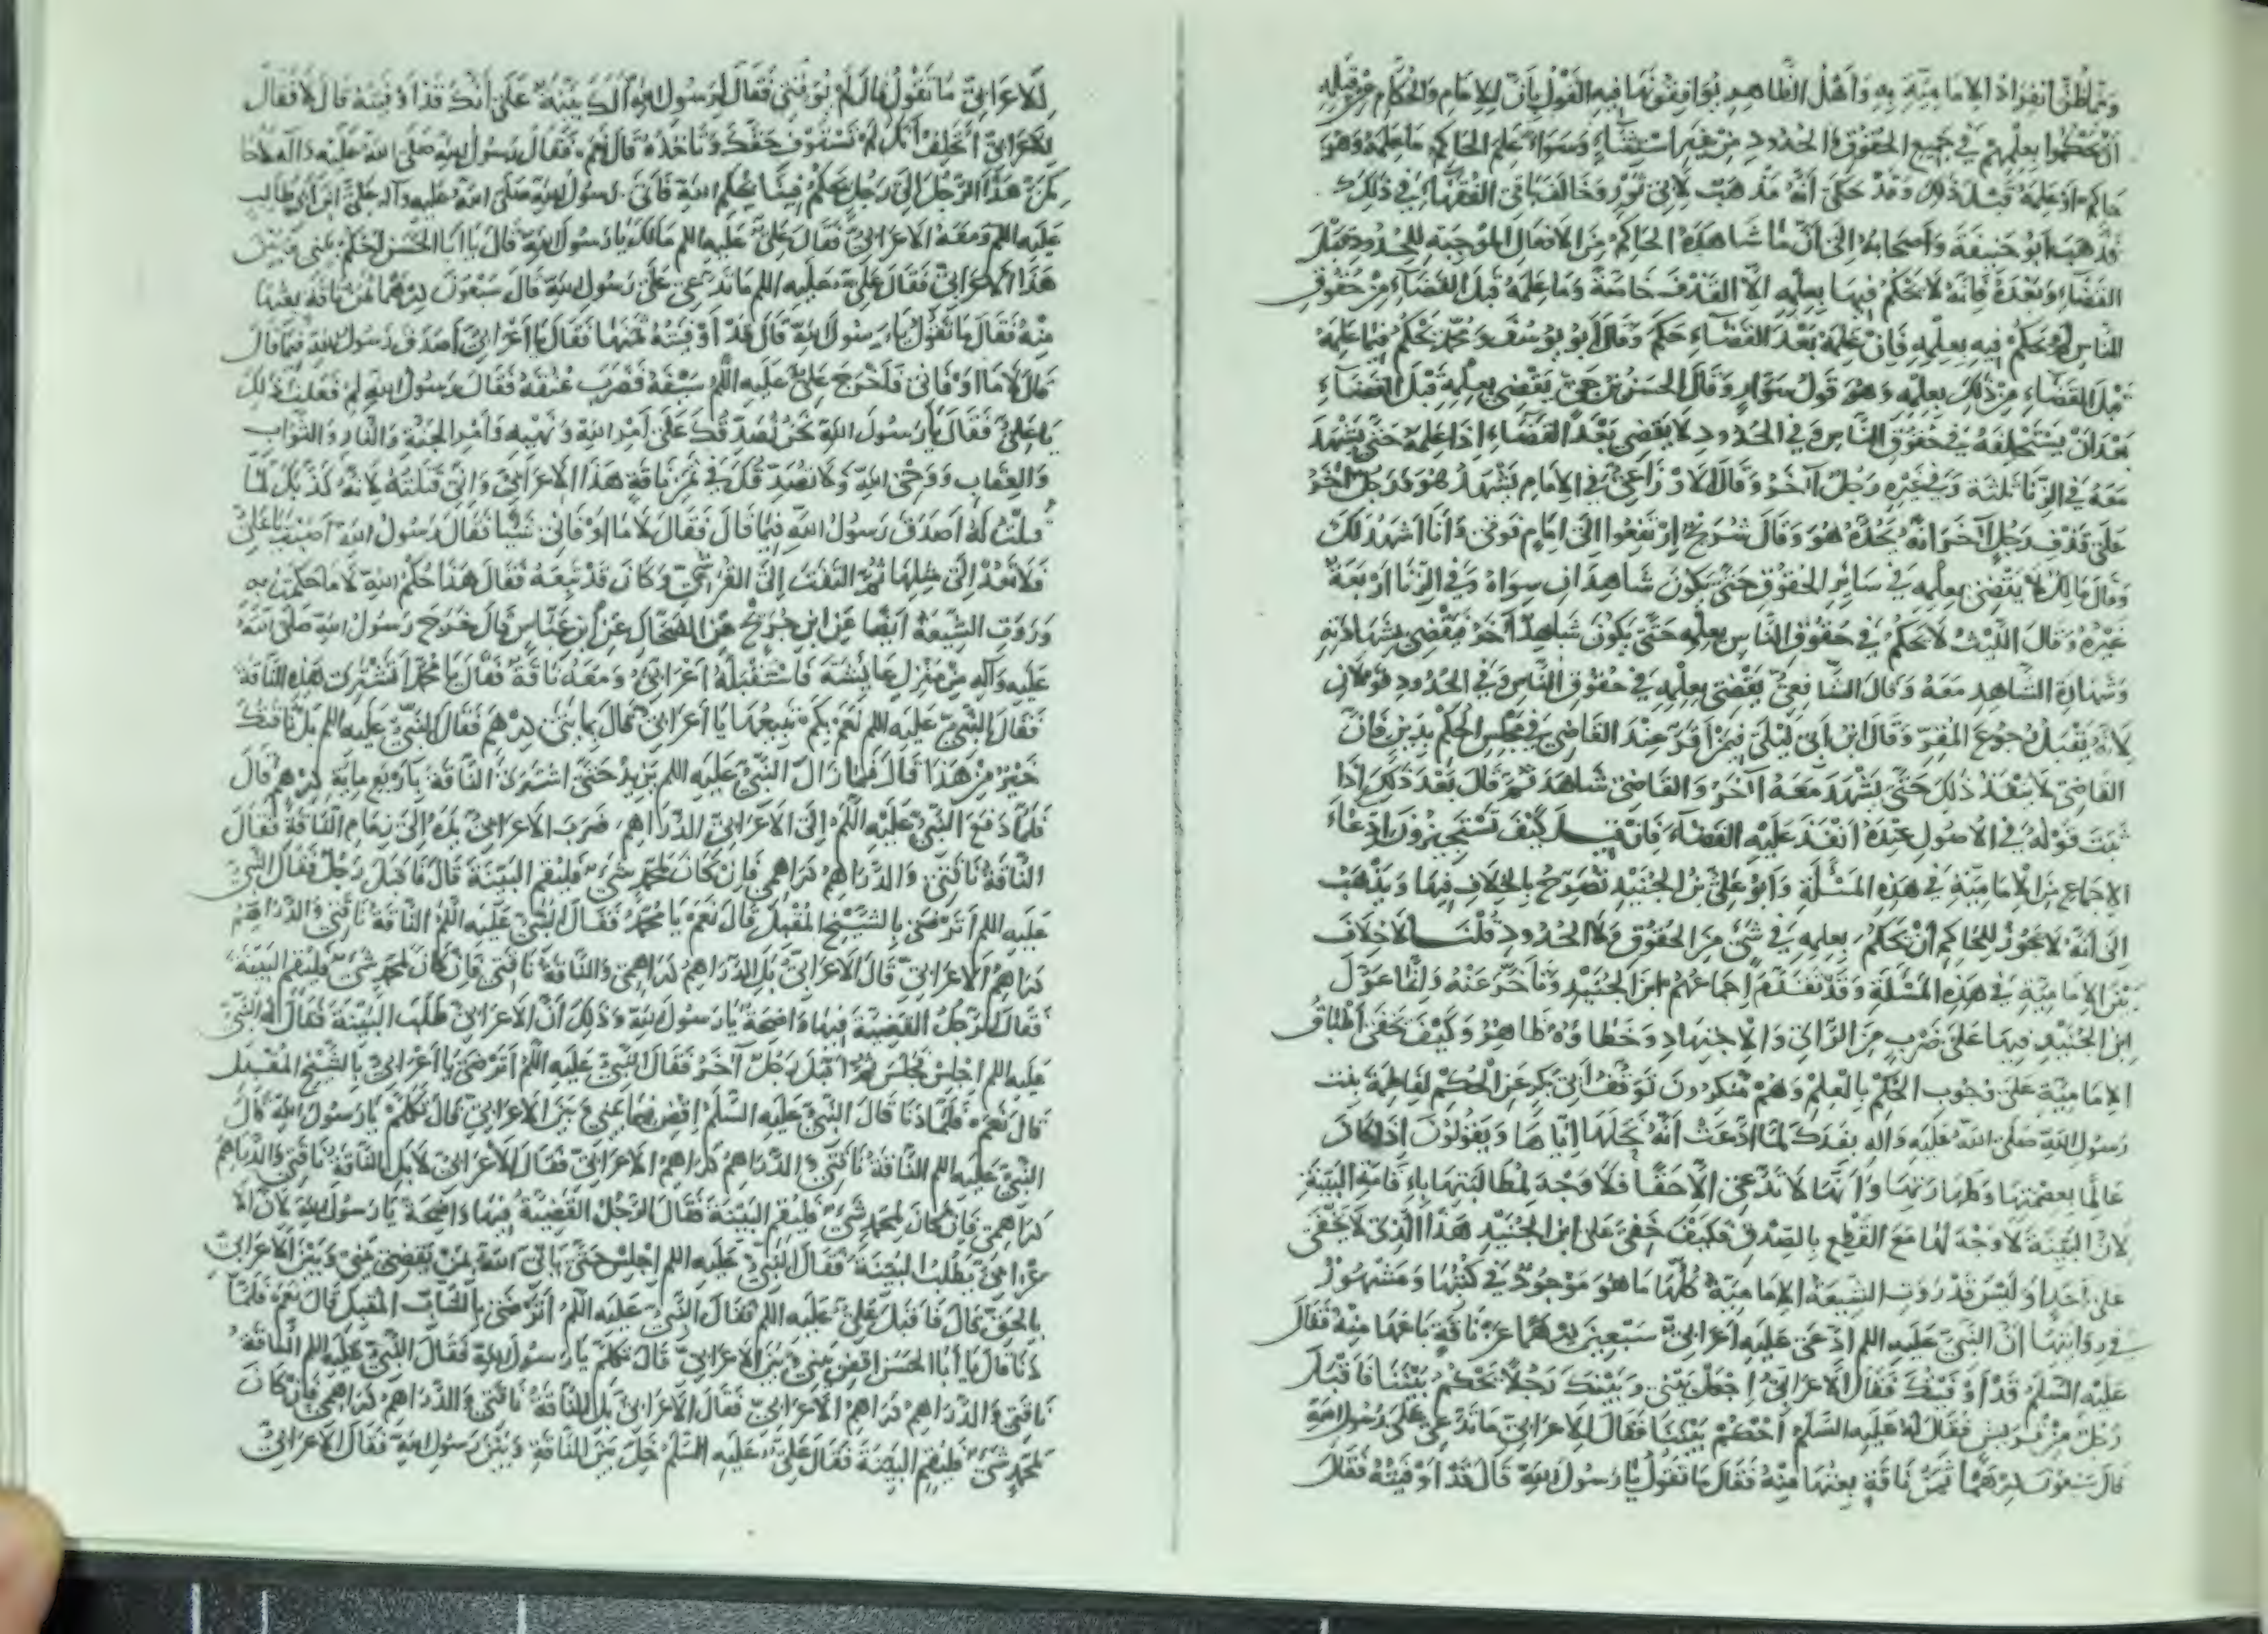 ومما ظن انفراد الامامية به وأهل الظاهر يوافقونها فيه القول بأن للامام والحكام من قبله
أن يحكموا بعلمهم في جميع الحقوق والحدود من غير استثناء وسواء علم الحاكم ما علمه وهو
حاكم او علمه قبل ذلك وقد حكى أنه مذهب لابي ثور وخالف باقي الفقهاء في ذلك
فذهب أبو حنيفة وأصحابه إلى أن ما شاهده الحاكم من الافعال الموجبة للحدود قبل
القضاء وبعده فانه لا يحكم فيها بعلمه الا القذف خاصة وما علمه قبل القضاء من حقوق
الناس لم يحكم فيه بعلمه فان علمه بعد القضاء حكم وقال أبو يوسف ومحمد يحكم فيما علمه
قبل القضاء من ذلك بعلمه وهو قول سوار وقال الحسن بن حي يقضي بعلمه قبل القضاء
بعد أن يستحلفه في حقوق الناس وفي الحدود لا يقضي بعد القضاء إذا علمه حتى يشهد
معه في الزنا ثلثة وفي غيره رجل آخر وقال الاوزاعي في الامام يشهد هو ورجل آخر
على قذف رجل آخر انه يحده هو وقال شريح ارتفعوا الى امام فوقي وأنا اشهد لك
وقال مالك لا يقضي بعلمه في سائر الحقوق حتى يكون شاهدان سواه وفي الزنا أربعة
غيره وقال الليث لا يحكم في حقوق الناس بعلمه حتى يكون شاهدا آخر فيقضي بشهادته
وشهادة الشاهد معه وقال الشافعي يقضي بعلمه في حقوق الناس وفي الحدود قولان
لانه يقبل رجوع المقر وقال ابن أبي ليلى فيمن أقر عند القاضي في مجلس الحكم بدين فان
القاضي لا ينفذ ذلك حتى يشهد معه آخر والقاضي شاهد ثم قال بعد ذلك إذا
ثبت قوله في الاصول عنده أنفذ عليه القضاء فان قيل كيف تستجيزون ادعاء
الاجماع من الامامية في هذه المسألة وأبو علي بن الجنيد يصرح بالخلاف فيها ويذهب
الى أنه لا يجوز للحاكم أن يحكم بعلمه في شيء من الحقوق ولا الحدود قلنا لا خلاف
بين الامامية في هذه المسألة وقد تقدم اجماعهم ابن الجنيد وتأخر عنه وانما عول
ابن الجنيد فيها على ضرب من الرأي والاجتهاد وخطاؤه ظاهر وكيف يخفى اطباق
الامامية على وجوب الحكم بالعلم وهم ينكرون توقف أبي بكر عن الحكم لفاطمة بنت
رسول الله صلى الله عليه واله بفدك لما ادعت أنه نحلها اياها ويقولون إذا كان
عالما بعصمتها وطهارتها وأنها لا تدعي الا حقا فلا وجه لمطالبتها باقامة البينة
لان البينة لا وجه لها مع القطع بالصدق فكيف خفي على ابن الجنيد هذا الذي لا يخفى
على أحد أوليس قد روت الشيعة الامامية كلها ما هو موجود في كتبها ومشهور
في روايتها أن النبي عليه السلم ادعى عليه أعرابي سبعين درهما عن ناقة باعها منه فقال
عليه السلم قد أوفيتك فقال الاعرابي اجعل بيني وبينك رجلا يحكم بيننا فاقبل
رجل من قريش فقال له عليه السلم أحكم بيننا فقال للاعرابي ما تدعي على رسول الله
قال سبعون درهما ثمن ناقة بعتها منه فقال ما تقول يا رسول الله قال قد أوفيته فقال
للاعرابي ما تقول قال لم يوفني فقال لرسول الله ألك بينة على أنك قد أوفيته قال لا فقال
للاعرابي اتحلف أنك لم تستوف حقك وتأخذه قال نعم فقال رسول الله صلى الله عليه وآله لأحا
كمن هذا الرجل إلى رجل يحكم فينا بحكم الله فأتى رسول الله صلى الله عليه وآله علي ابن أبي طالب
عليه السلم ومعه الاعرابي فقال علي عليه السلم مالك يا رسول الله قال يا أبا الحسن احكم بيني وبين
هذا الأعرابي فقال علي عليه السلم ما تدعي على رسول الله قال سبعون درهما ثمن ناقة بعتها
منه فقال ما تقول يا رسول الله قال قد أوفيته ثمنها فقال يا أعرابي أصدق رسول الله فيما قال
قال لا ما اوفاني فأخرج علي عليه السلم سيفه فضرب عنقه فقال رسول الله لم فعلت ذلك
يا علي فقال يا رسول الله نحن نصدقك على أمر الله ونهيه وأمر الجنة والنار والثواب
والعقاب ووحي الله ولا نصدقك في ثمن ناقة هذا الاعرابي واني قتلته لانه كذبك لما
قلت له أصدق رسول الله فيما قال فقال لا ما اوفاني شيئا فقال رسول الله أصبت يا علي
فلا تعد إلى مثلها ثم التفت إلى القرشي وكان قد تبعه فقال هذا حكم الله لا ما حكمت به
وروت الشيعة ايضا عن ابن جريج عن الضحاك عن ابن عباس قال خرج رسول الله صلى الله
عليه وآله من منزل عايشة فاستقبله أعرابي ومعه ناقة فقال يا محمد أتشتري هذه الناقة
فقال النبي عليه السلم نعم بكم تبيعها يا أعرابي قال بمايتي درهم فقال النبي عليه السلم بل ناقتك
خير من هذا قال فما زال النبي عليه السلم يزيد حتى اشترى الناقة بأربع ماية درهم قال
فلما دفع النبي عليه السلم إلى الاعرابي الدراهم ضرب الاعرابي يده إلى زمام الناقة فقال
الناقة ناقتي والدراهم دراهمي فان كان لمحمد شيء فليقم البينة قال فاقبل رجل فقال النبي
عليه السلم أترضى بالشيخ المقبل قال نعم يا محمد فقال النبي عليه السلم الناقة ناقتي والدراهم
دراهم الاعرابي قال الاعرابي بل الدراهم دراهمي والناقة ناقتي فان كان لمحمد شيء فليقم البينة
فقال الرجل القضية فيها واضحة يا رسول الله وذلك أن الاعرابي طلب البينة فقال له النبي
عليه السلم اجلس فجلس ثم أقبل رجل آخر فقال النبي عليه السلم أترضى يا أعرابي بالشيخ المقبل
قال نعم فلما دنا قال النبي عليه السلم اقض فيما بيني وبين الاعرابي قال تكلم يا رسول الله قال
النبي عليه السلم الناقة ناقتي والدراهم دراهم الاعرابي فقال الأعرابي لا بل الناقة ناقتي والدراهم
دراهمي فان كان لمحمد شيء فليقم البينة فقال الرجل القضية فيها واضحة يا رسول الله لان الا
عرابي يطلب البينة فقال النبي عليه السلم اجلس حتى يأتي الله بمن يقضي بيني وبين الاعرابي
بالحق قال فاقبل علي عليه السلم فقال النبي عليه السلم أترضى بالشاب المقبل قال نعم فلما
دنا قال يا أبا الحسن اقض بيني وبين الاعرابي قال تكلم يا رسول الله فقال النبي عليه السلم الناقة
ناقتي والدراهم دراهم الاعرابي فقال الاعرابي بل الناقة ناقتي والدراهم دراهمي فإن كان
لمحمد شيء فليقم البينة فقال علي عليه السلم خل بين الناقة وبين رسول الله فقال الاعرابي